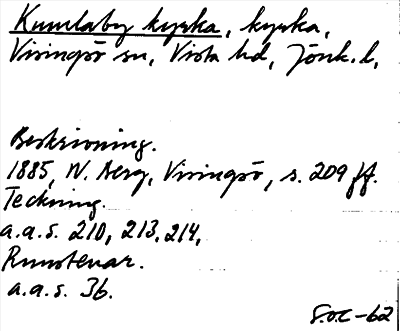 Kumlaby kyrka, kyrka,
Visingsö sn, Vista hd, Jönk. l,
Beskrivning.
1885, W. Berg, Visingsö, s. 209 ff.
Teckning.
a.a.s. 210, 213, 214,
Runstenar.
a.a.s. 36.
S.OC-62